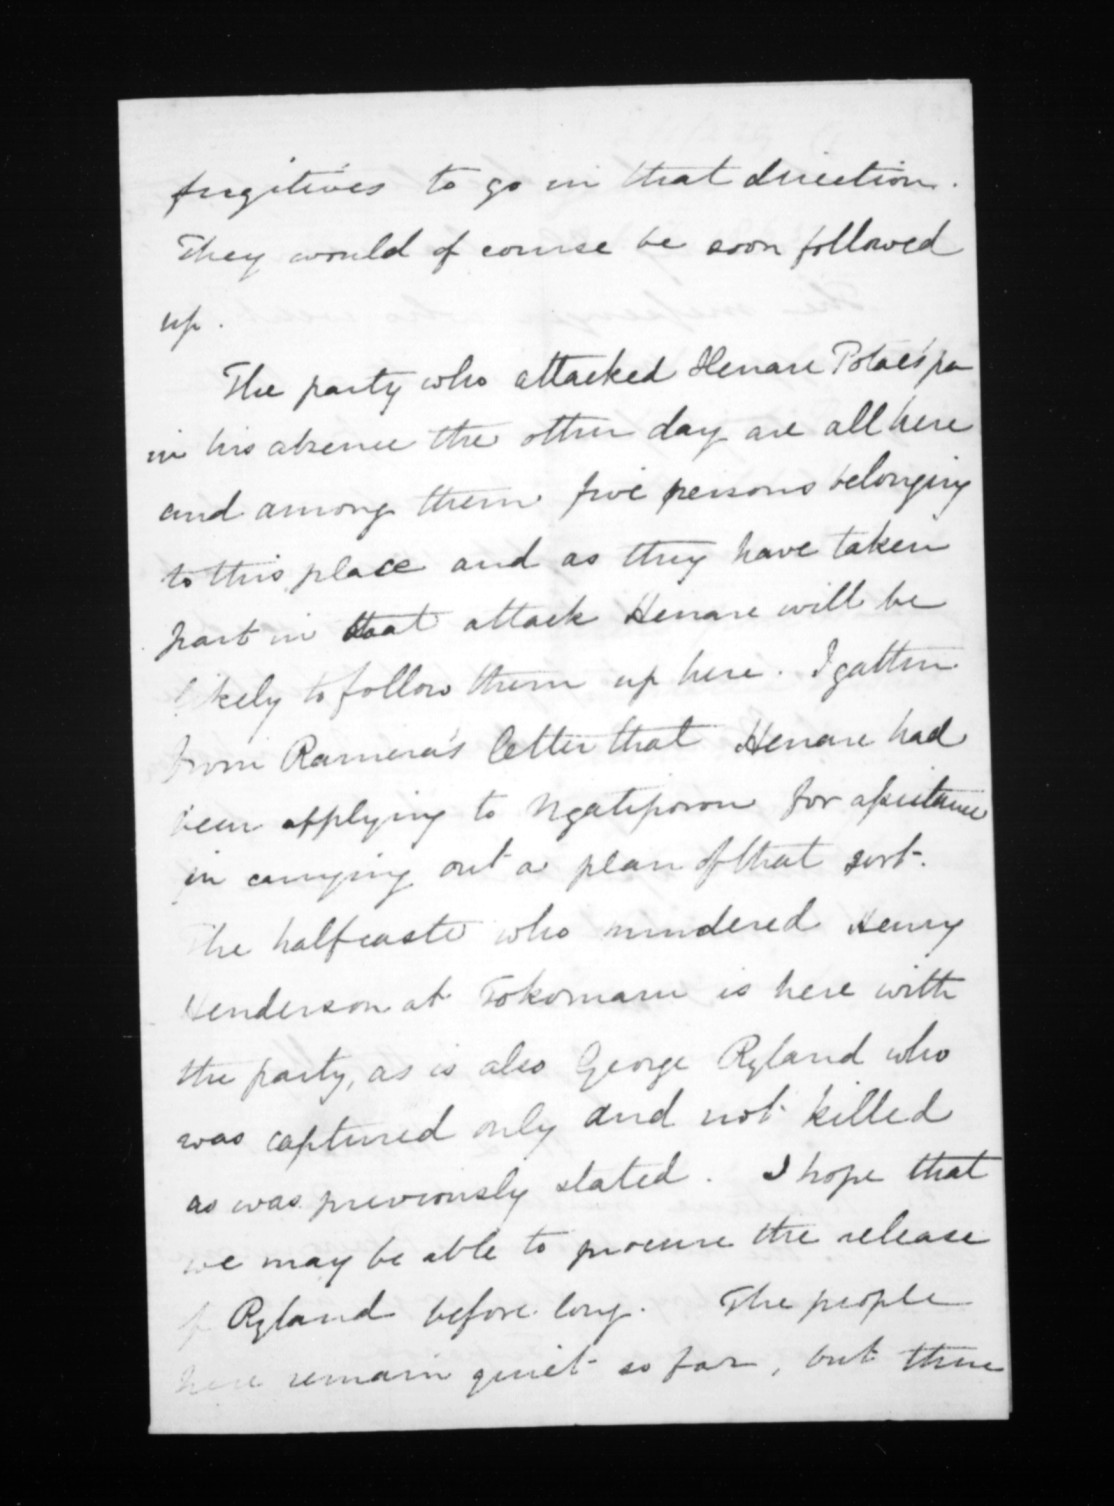 fugitives to go in that direction.
They would of course be soon followed
up.
The party who attacked Henare Potae's pa
in his absence the other day are all here
and among them five persons belonging
to this place and as they have taken
part in that attack Henare will be
likely to follow them up here. I gather
from Ramera's letter that Henare had
been applying to Ngatiporou for assistance
in carrying out a plan of that sort.
The halfcaste who murdered Henry
Henderson at Tokomaru is here with
the party, as is also George Ryland who
was captured only and not killed
as was previously stated. I hope that
we may be able to procure the release
of Ryland before long. The people
here remain quiet so far, but there